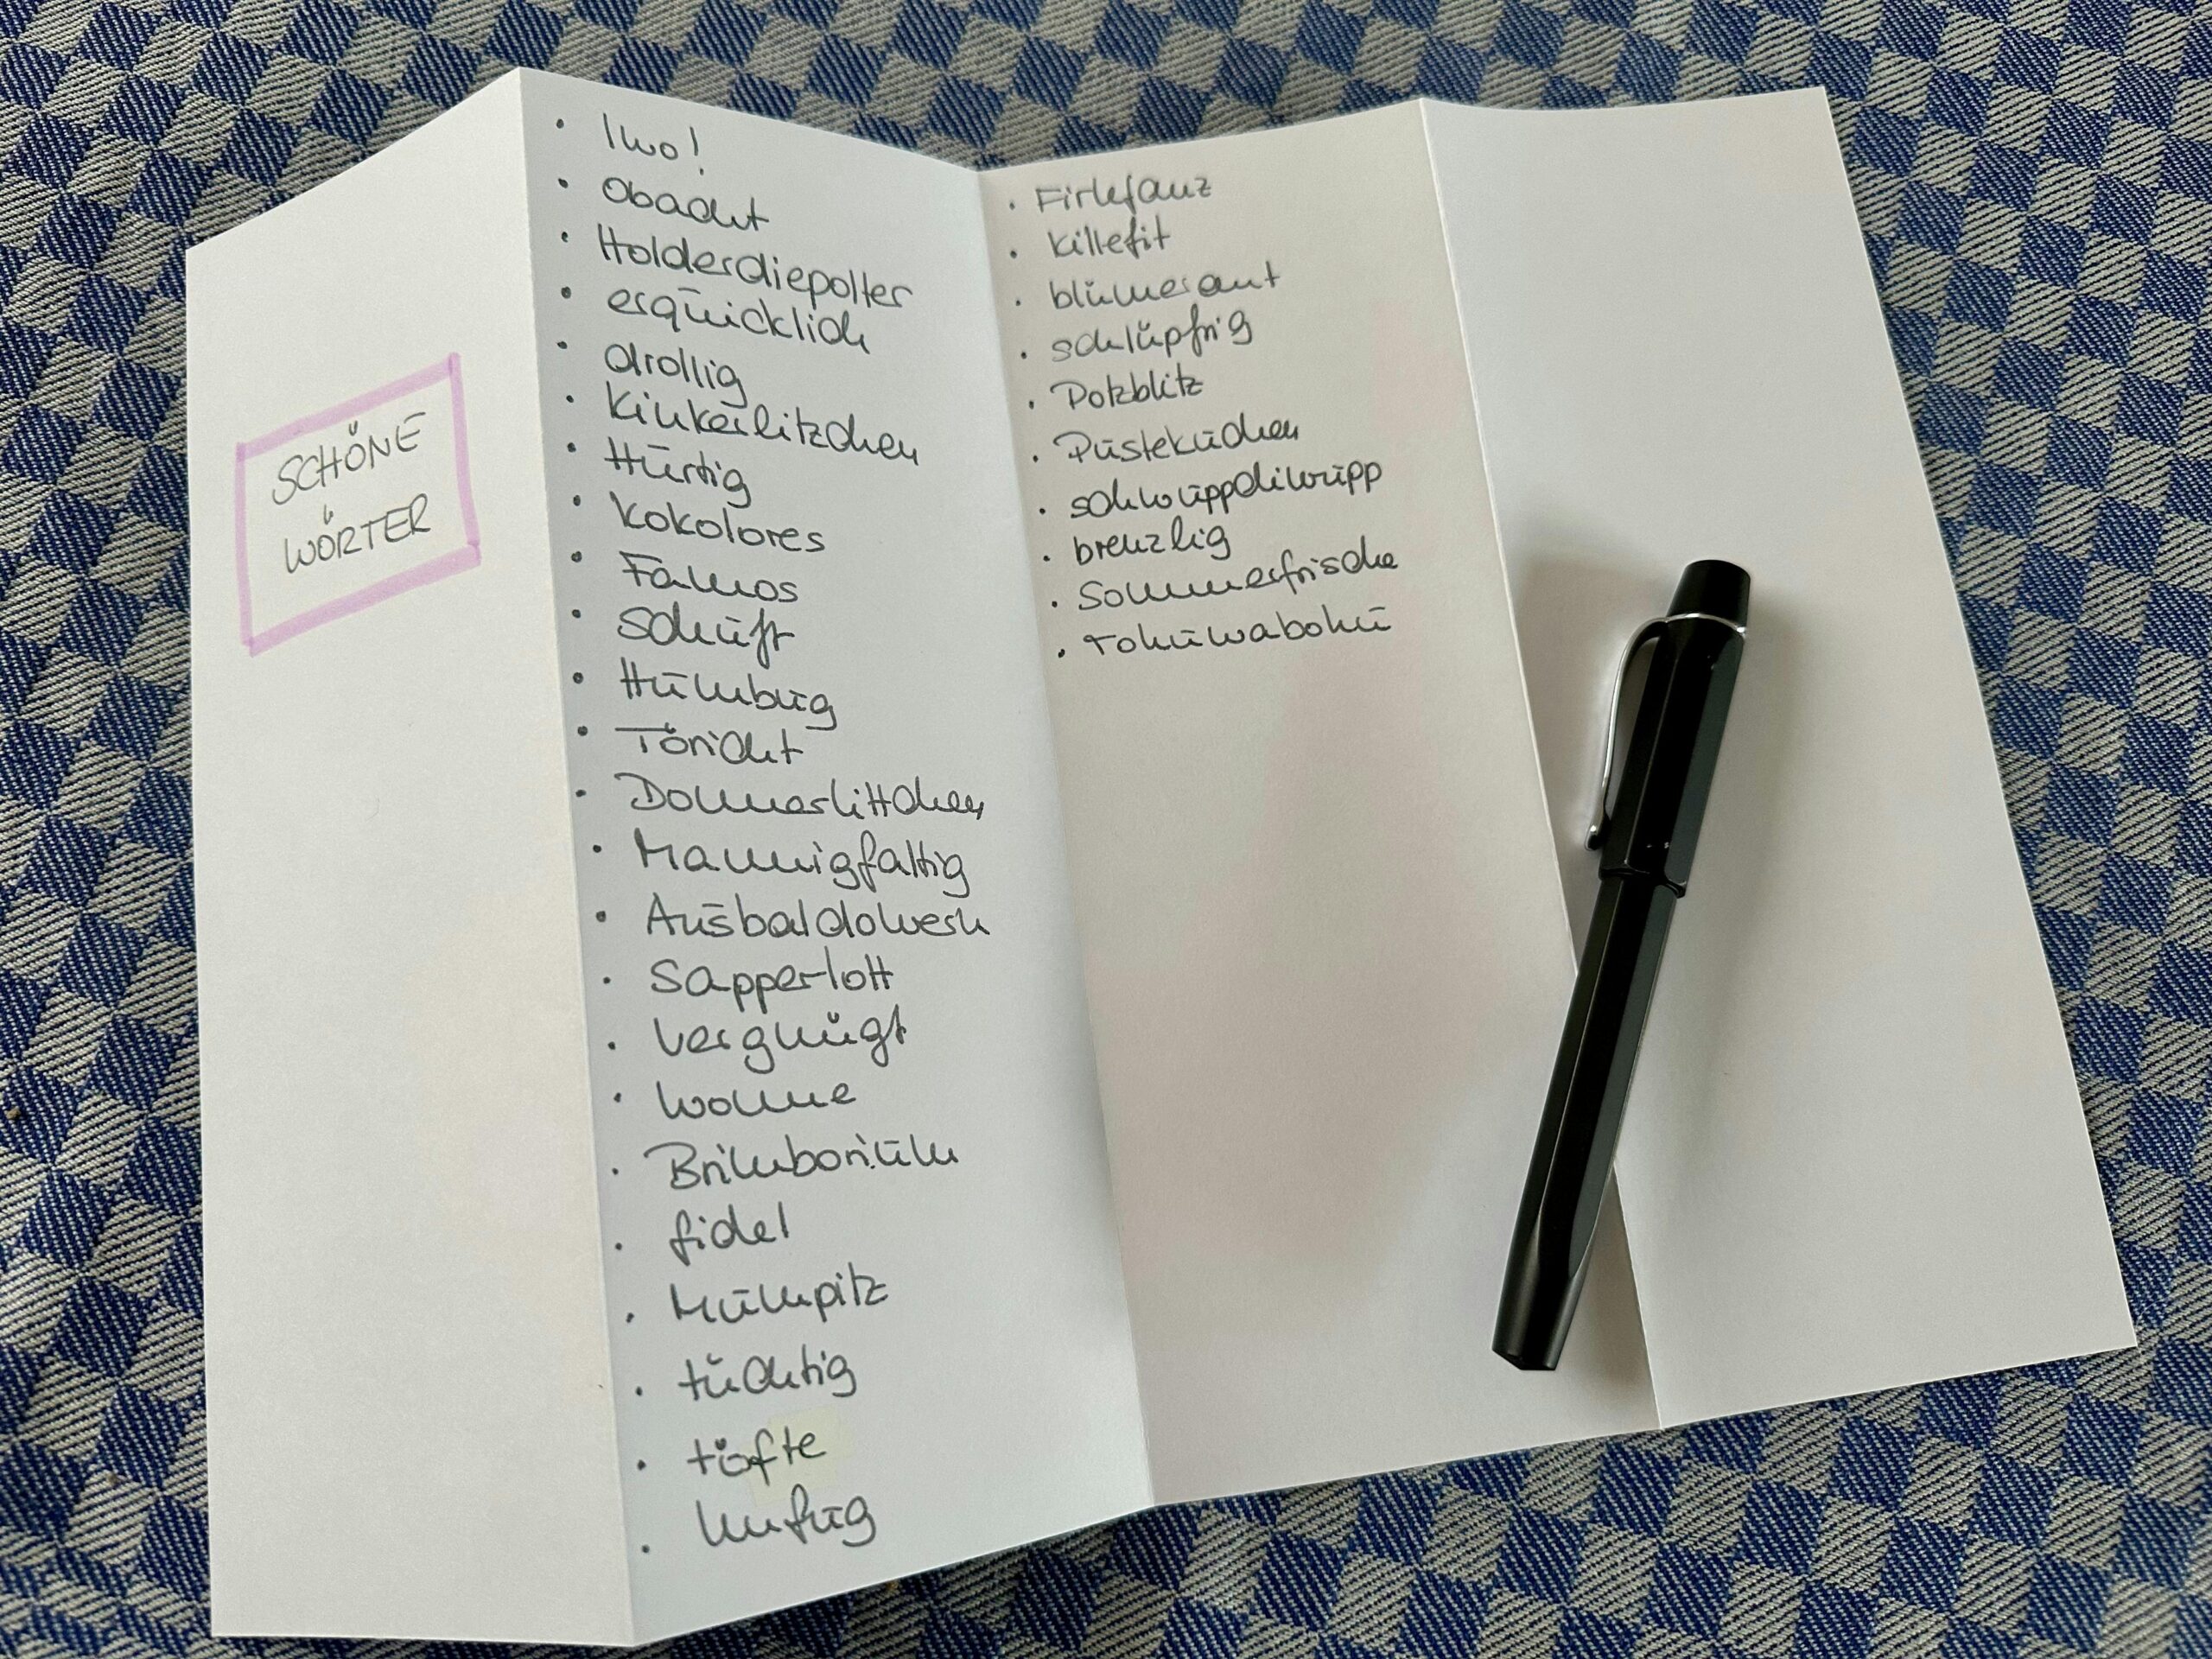 SCHÖNE
WÖRTER
• Iwo!
• Obacht
• Holderdiepolter
• erquicklich
• drollig
• Kinkerlitzchen
• Hurtig
• Kokolores
• Famos
• Schuft
• Humbug
• Töricht
• Donnerlittchen
• Mannigfaltig
• Ausbaldowern
• Sapperlott
• Vergnügt
• Wonne
• Brimborium
• fidel
• Mumpitz
• tüchtig
• töfte
• Unfug
• Firlefanz
• Killefit
• blümerant
• schlüpfrig
• Potzblitz
• Pustekuchen
• schwuppdiwupp
• brenzlig
• Sommerfrische
• Tohuwabohu